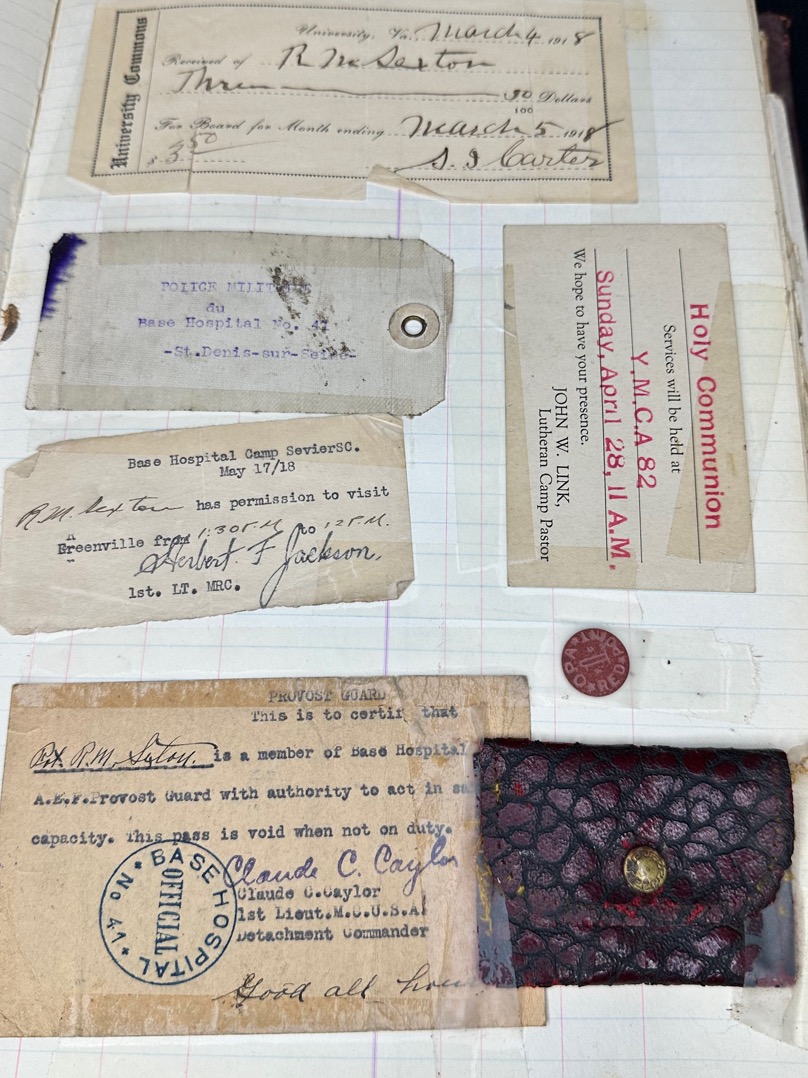 University Commons
University, Va. March 4 1918
Received of R M Sexton
Three 50 Dollars
100
For Board for Month ending March 5 1918
$ 3 50
S. I Carter
POLICE MILIT
du
Base Hospital No. 41
-St.Denis-sur-Seine-
Holy Communion
Services will be held at
Y.M.C.A 82
Sunday, April 28, 11 A.M.
We hope to have your presence.
JOHN W. LINK,
Lutheran Camp Pastor
Base Hospital Camp SevierSC.
May 17/18
R.M. Sexton has permission to visit
Greenville from 1:30P.M to 12P.M.
Herbert F Jackson,
1st. LT. MRC.
OPA RED POINT
1
PROVOST GUARD
This is to certif that
Pvt. R.M. Sexton. is a member of Base Hospital
A.E.F.Provost Guard with authority to act in sa
capacity. This pass is void when not on duty.
Claude C. Caylor
Claude C.Caylor
1st Lieut.M.C.U.S.A.
Detachment Commander
BASE HOSPITAL No 41
OFFICIAL
Good all hou